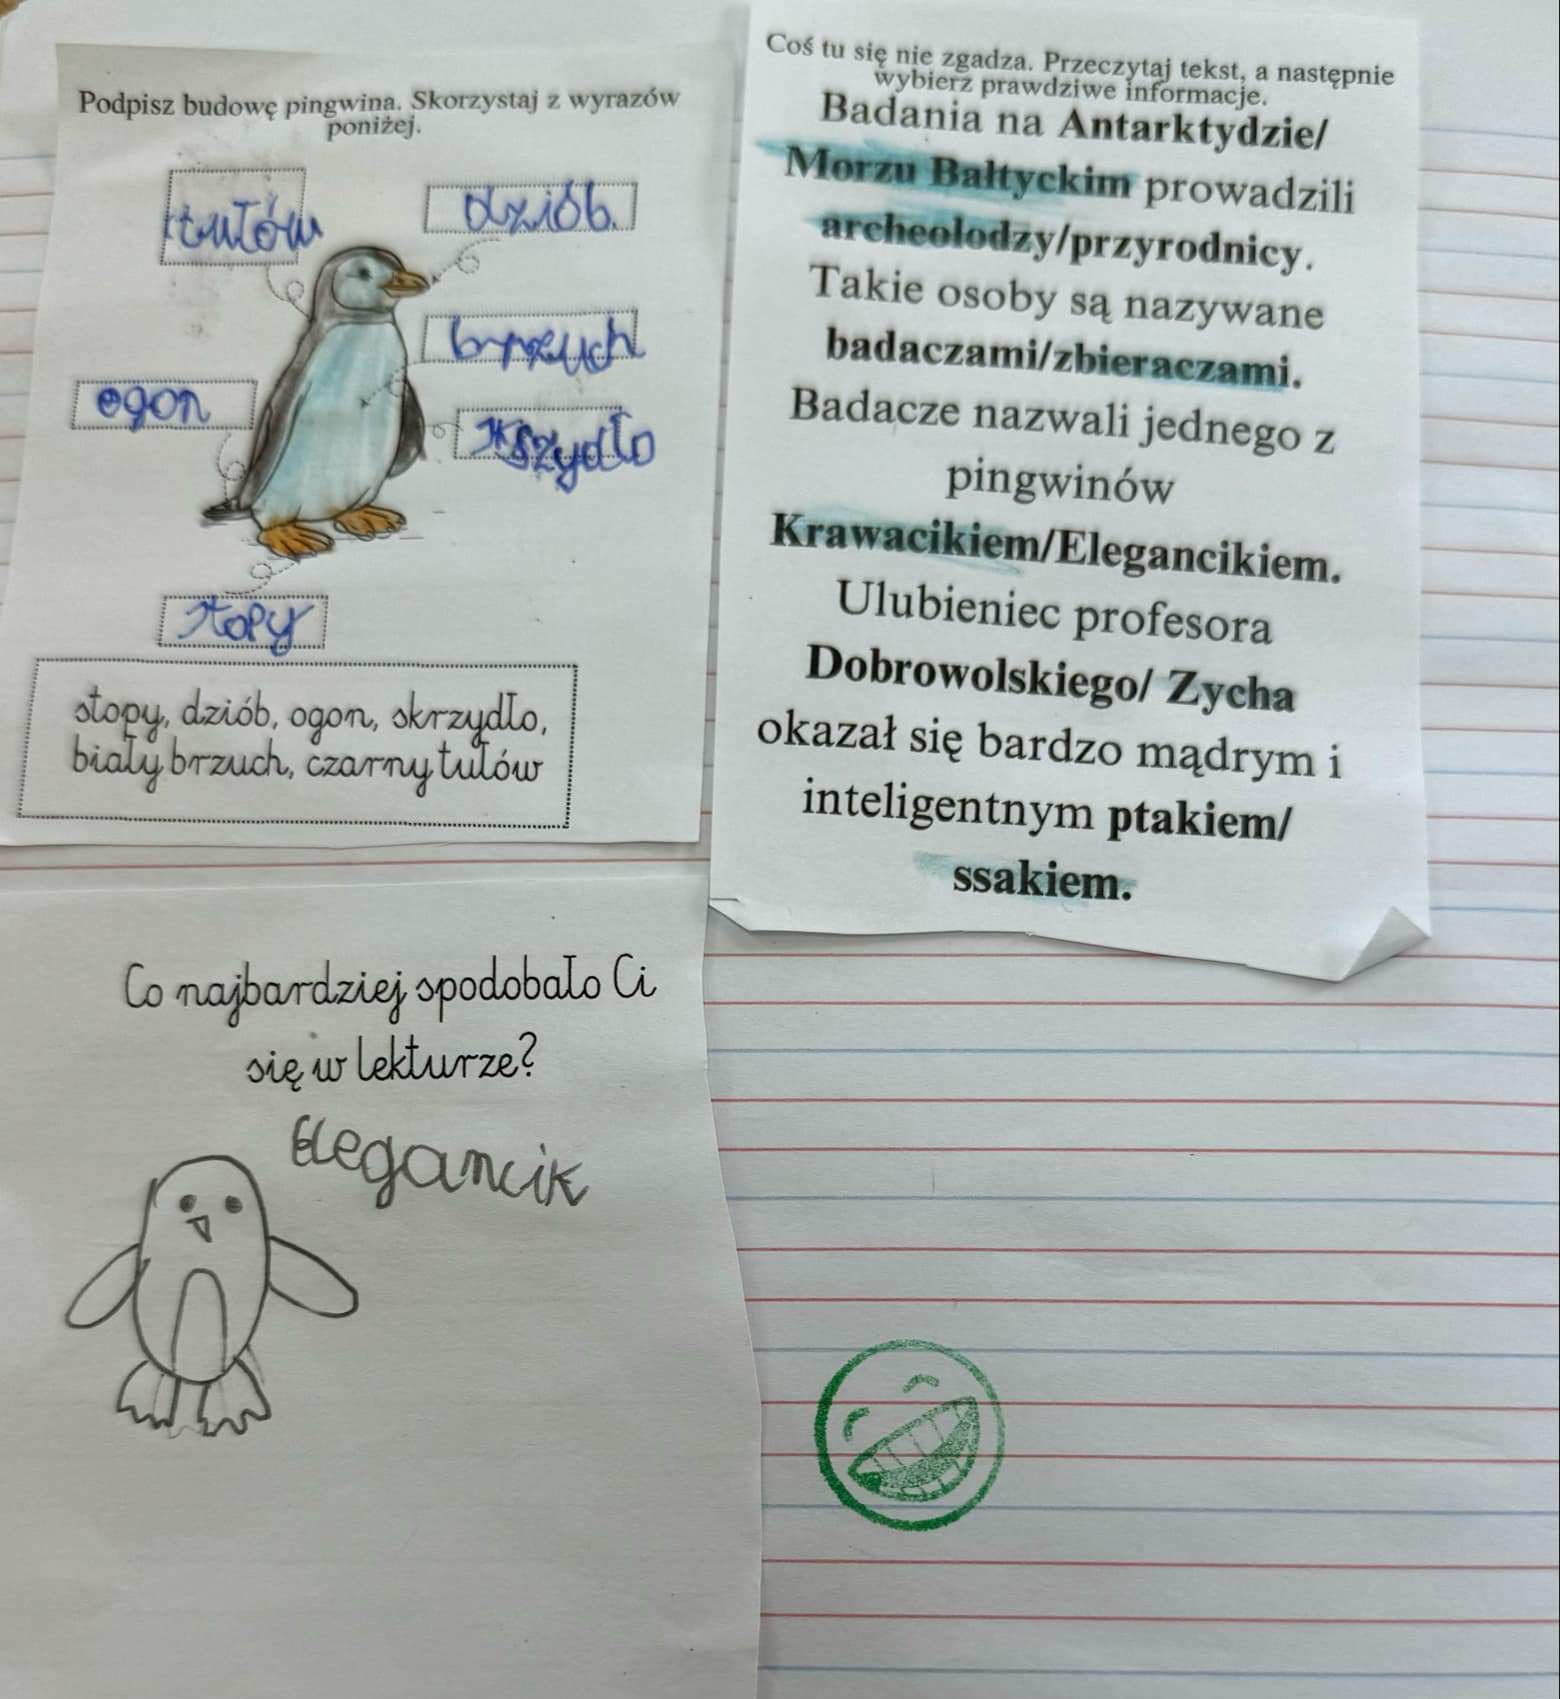 Podpisz budowę pingwina. Skorzystaj z wyrazów
poniżej.
tułów
dziób.
brzuch
ogon
skszydło
stopy
stopy, dziób, ogon, skrzydło,
biały brzuch, czarny tułów
Coś tu się nie zgadza. Przeczytaj tekst, a następnie
wybierz prawdziwe informacje.
Badania na Antarktydzie/
Morzu Bałtyckim prowadzili
archeolodzy/przyrodnicy.
Takie osoby są nazywane
badaczami/zbieraczami.
Badacze nazwali jednego z
pingwinów
Krawacikiem/Elegancikiem.
Ulubieniec profesora
Dobrowolskiego/ Zycha
okazał się bardzo mądrym i
inteligentnym ptakiem/
ssakiem.
Co najbardziej spodobało Ci
się w lekturze?
Elegancik